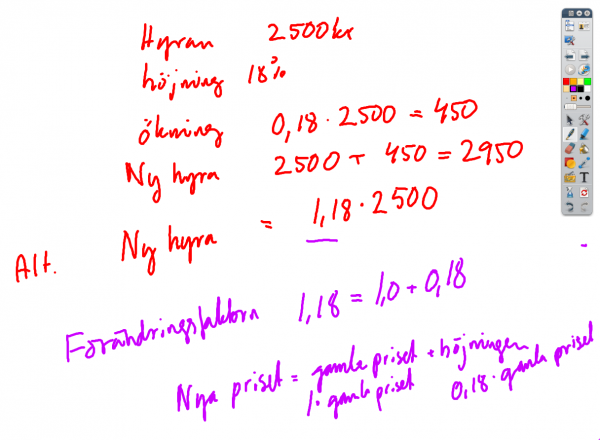 Hyran 2500kr
höjning 18%
ökning 0,18 · 2500 = 450
Ny hyra 2500 + 450 = 2950
Alt. Ny hyra = 1,18 · 2500
Förändringsfaktorn 1,18 = 1,0 + 0,18
Nya priset = gamla priset + höjningen
1 · gamla priset 0,18 · gamla priset